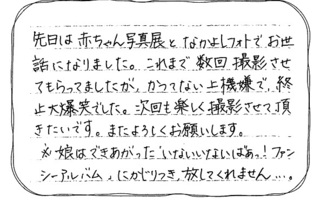 先日は赤ちゃん写真展となかよしフォトでお世
話になりました。これまで数回撮影させ
てもらってましたが、かつてない上機嫌で、終
止大爆笑でした。次回も楽しく撮影させて頂
きたいです。またよろしくお願いします。
※娘はできあがった"いないいないばあっ!ファン
シーアルバム"にかじりつき、放してくれません…。